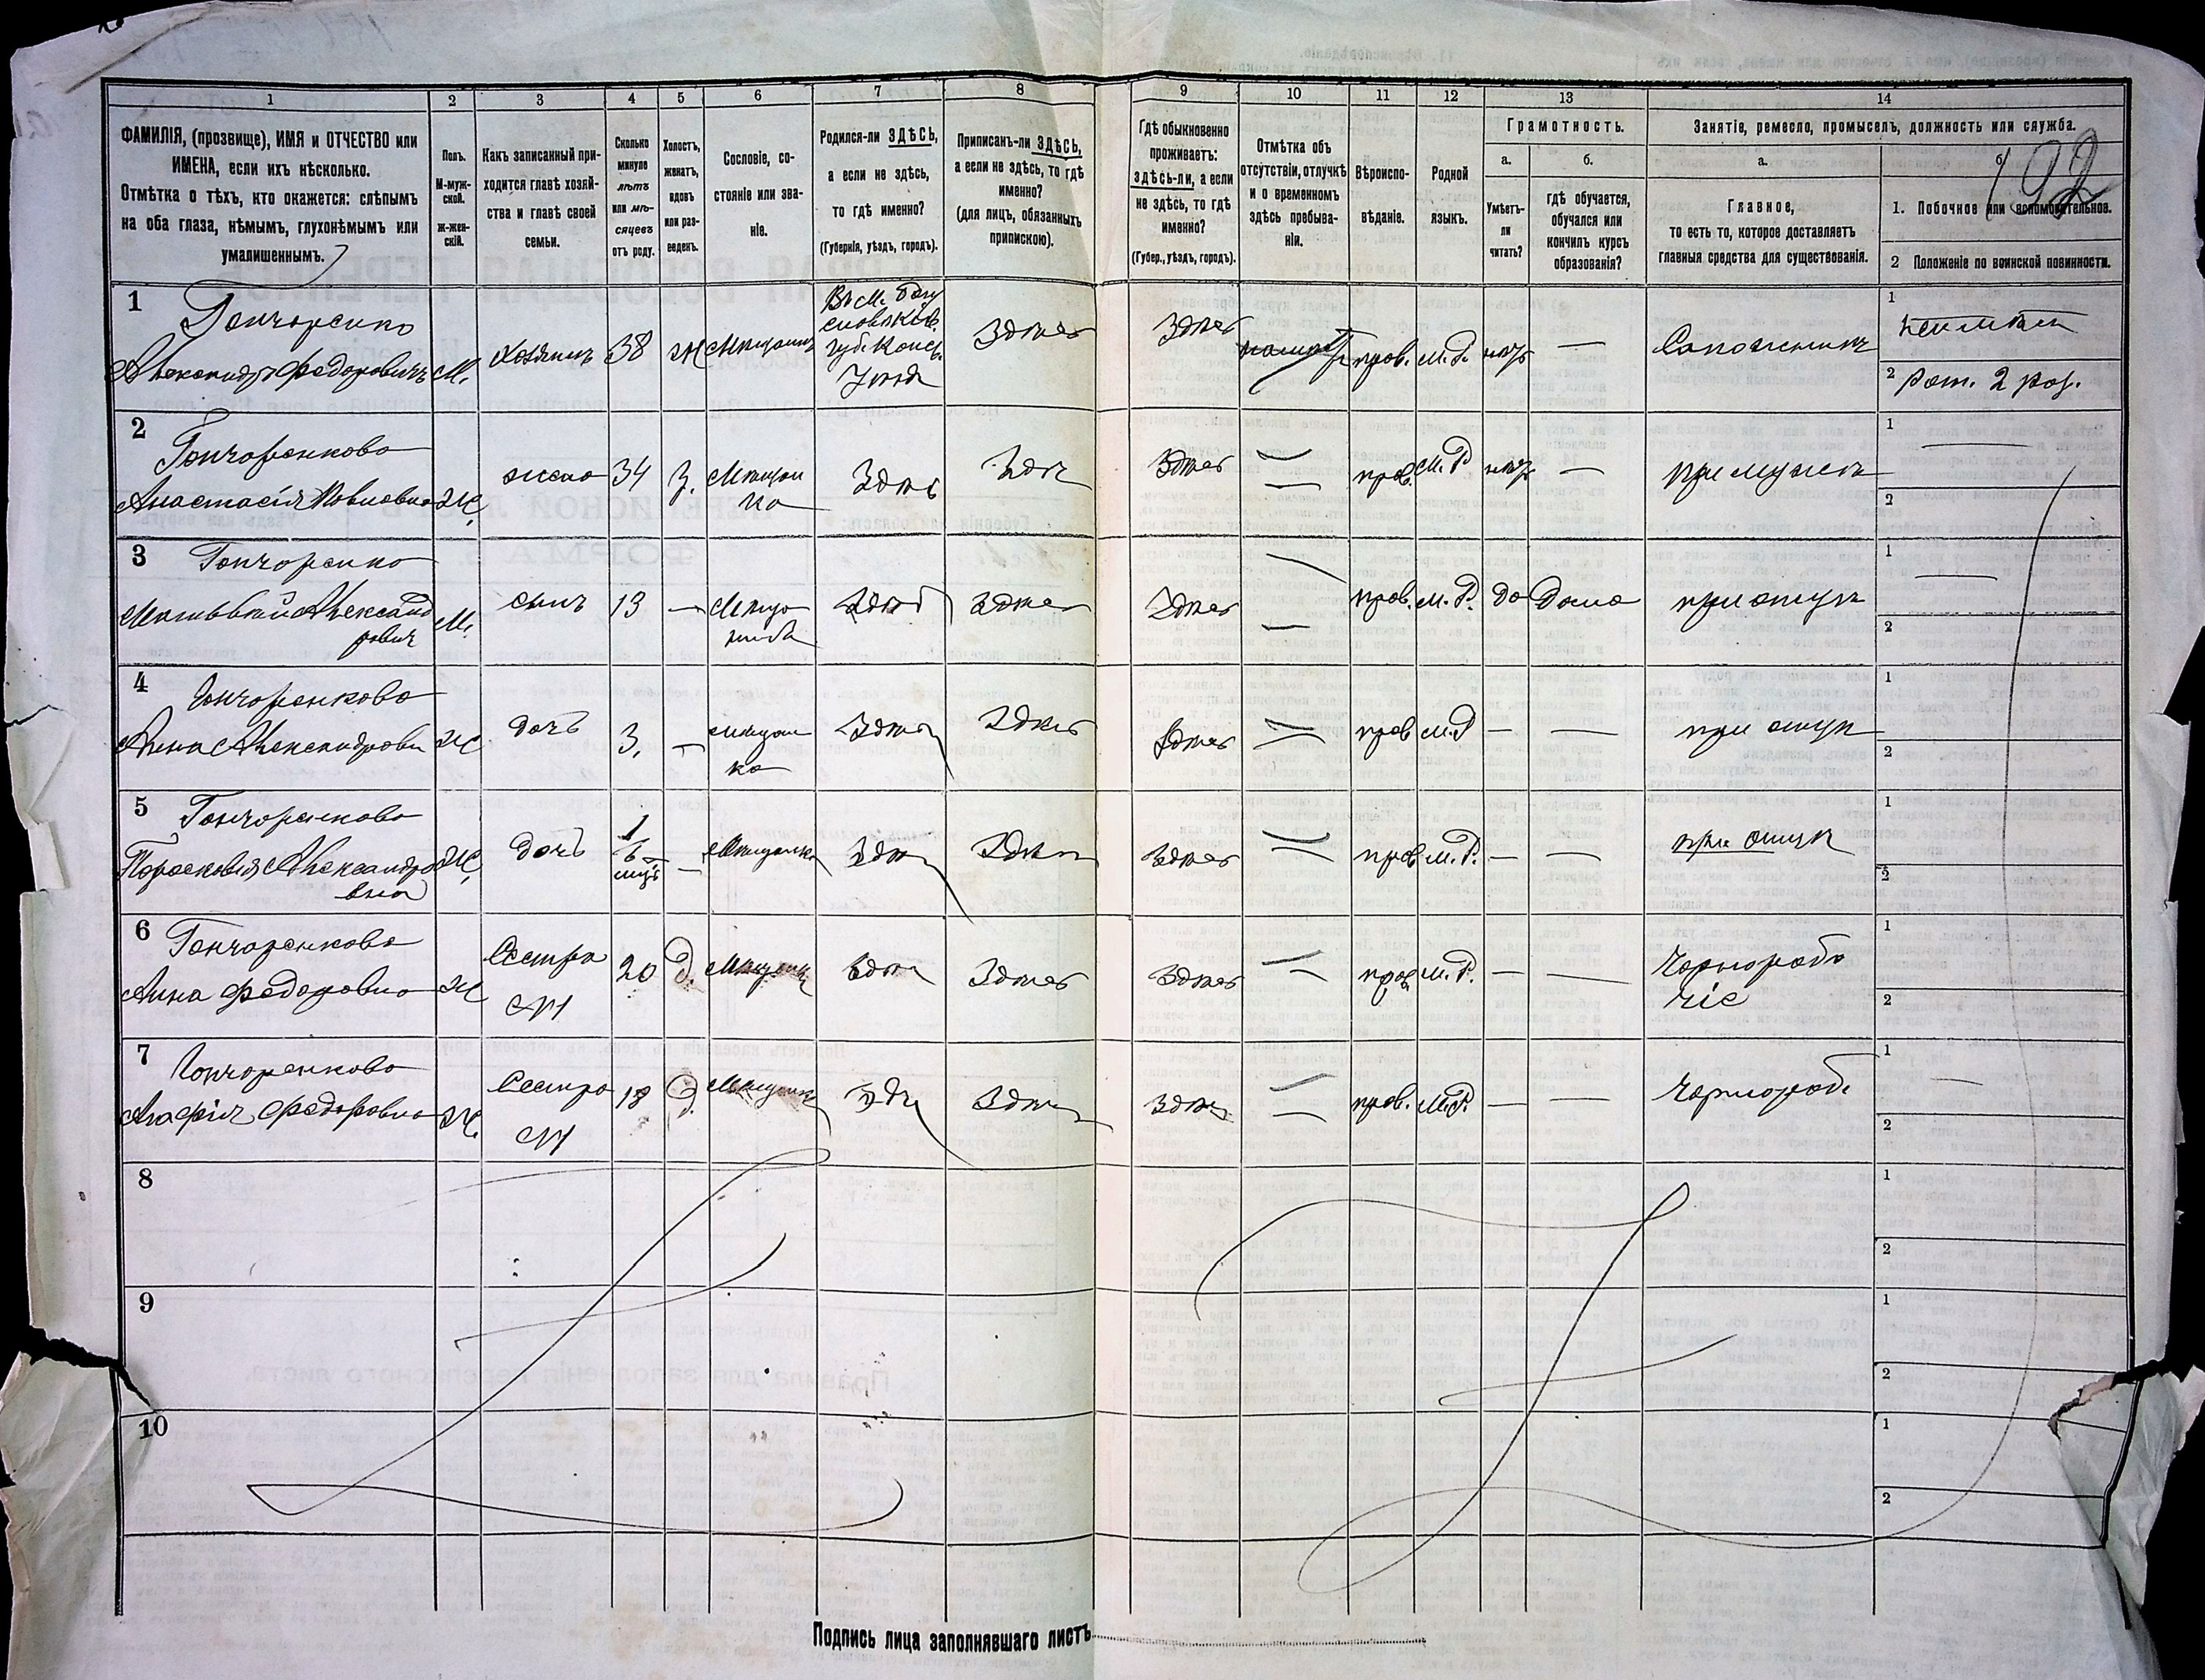 1 2 3 4 5 6 7 8 9 10 11 12 13 14
ФАМИЛІЯ, (прозвище), ИМЯ и ОТЧЕСТВО или
ИМЕНА, если ихъ нѣсколько.
Отмѣтка о тѣхъ, кто окажется: слѣпымъ
на оба глаза, нѣмымъ, глухонѣмымъ или
умалишеннымъ.
Полъ.
М-муж-
ской.
ж-жен-
скій.
Какъ записанный при-
ходится главѣ хозяй-
ства и главѣ своей
семьи.
Сколько
минуло
лѣтъ
или мѣ-
сяцевъ
отъ роду.
Холостъ,
женатъ,
вдовъ
или раз-
веденъ.
Сословіе, со-
стояніе или зва-
ніе.
Родился-ли ЗДѢСЬ,
а если не здѣсь,
то гдѣ именно?
(Губернія, уѣздъ, городъ).
Приписанъ-ли ЗДѢСЬ,
а если не здѣсь, то гдѣ
именно?
(для лицъ, обязанныхъ
припискою).
Гдѣ обыкновенно
проживаетъ:
здѣсь-ли, а если
не здѣсь, то гдѣ
именно?
(Губер., уѣздъ, городъ).
Отмѣтка объ
отсутствіи, отлучкѣ
и о временномъ
здѣсь пребыва-
ніи.
Вѣроиспо-
вѣданіе.
Родной
языкъ.
Грамотность.
а.
Умѣетъ-
ли
читать?
б.
гдѣ обучается,
обучался или
кончилъ курсъ
образованія?
Занятіе, ремесло, промыселъ, должность или служба.
а.
Главное,
то есть то, которое доставляетъ
главныя средства для существованія.
б
192
1. Побочное или вспомогательное.
2 Положеніе по воинской повинности.
1
Гончоренко
Александръ Федоровичъ
М.
Хозяинъ
38
Ж
Мещанинъ
Въ М. Богу
славѣ Кіев.
губ. Канев.
Уѣзда
Здѣсь
Здѣсь
прав.
М. Р.
нѣтъ
—
Сапожникъ
1
2 Рат. 2 раз.
2
Гончоренкова
Анастасія Павловна
Ж.
жена
34
З.
Мещан
ка
Здѣсь
Здѣсь
Здѣсь
прав.
М. Р.
нѣтъ
—
при мужѣ
1 —
2
3
Гончоренко
Матвѣй Александ
рович
М.
сынъ
13
—
Меща
нинъ
Здѣсь
Здѣсь
Здѣсь
прав.
М. Р.
да
Дома
при отцѣ
1 —
2
4
Гончоренкова
Анна Александровн
Ж
дочь
3.
—
мещан
ка
Здѣсь
Здѣсь
Здѣсь
прав
М. Р
—
—
при отцѣ
1
2
5
Гончоренкова
Парасковія Александро
вна
Ж.
дочь
—
Мещанка
Здѣсь
Здѣсь
Здѣсь
прав
М. Р.
—
—
при отцѣ
1
2
6
Гончоренкова
Анна Федоровна
Ж
Сестра
СМ
20
Д.
Мещанка
Здѣсь
Здѣсь
Здѣсь
прав.
М. Р.
—
—
Чернорабо
чіе
1
2
7
Гончоренкова
Агафія Федоровна
Ж.
Сестра
СМ
18
Д.
Мещанка
Здѣсь
Здѣсь
Здѣсь
прав.
М. Р.
—
—
Чернораб.
1 —
2
8
1
2
9
1
2
10
1
2
Подпись лица заполнявшаго листъ